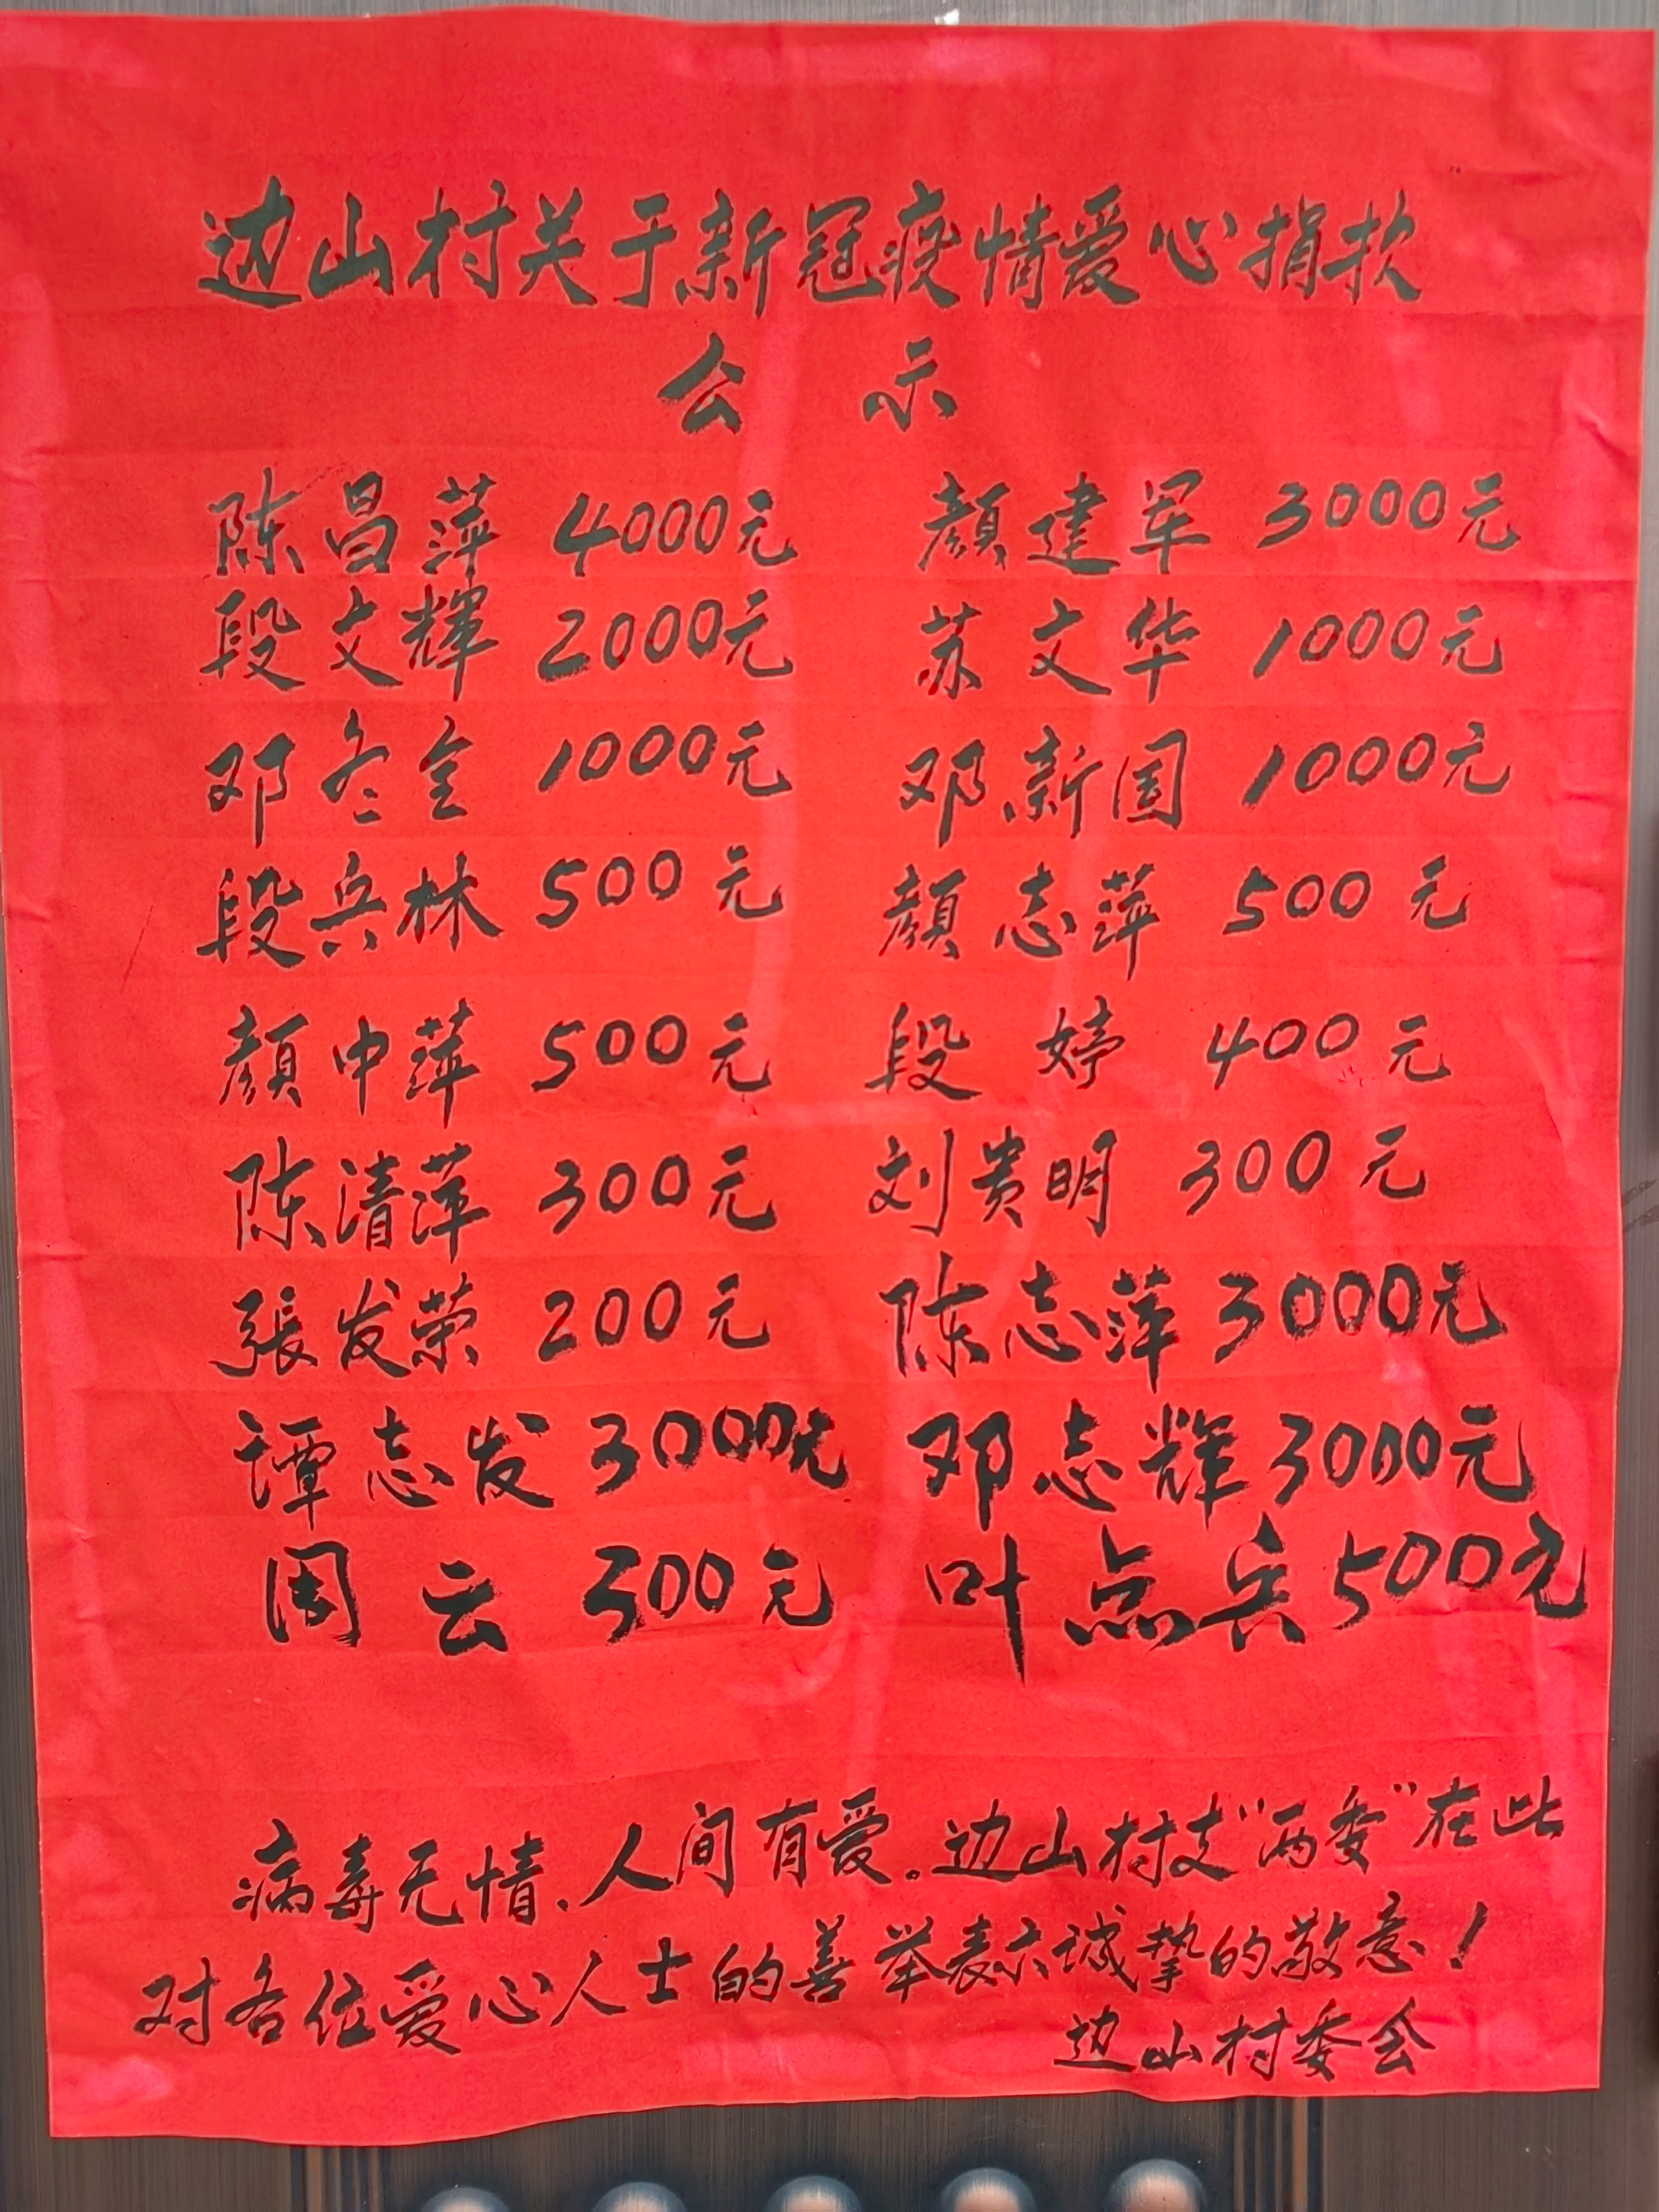 边山村关于新冠疫情爱心捐款
公 示
陈昌萍 4000元 顔建军 3000元
段文輝 2000元 苏文华 1000元
邓冬全 1000元 邓新国 1000元
段兵林 500元 顔志萍 500元
顔中萍 500元 段婷 400元
陈清萍 300元 刘贵明 300元
張发荣 200元 陈志萍 3000元
谭志发 3000元 邓志辉 3000元
周云 300元 叶点兵 500元
病毒无情.人间有爱。边山村支“两委”在此
对各位爱心人士的善举表示诚挚的敬意！
边山村委会